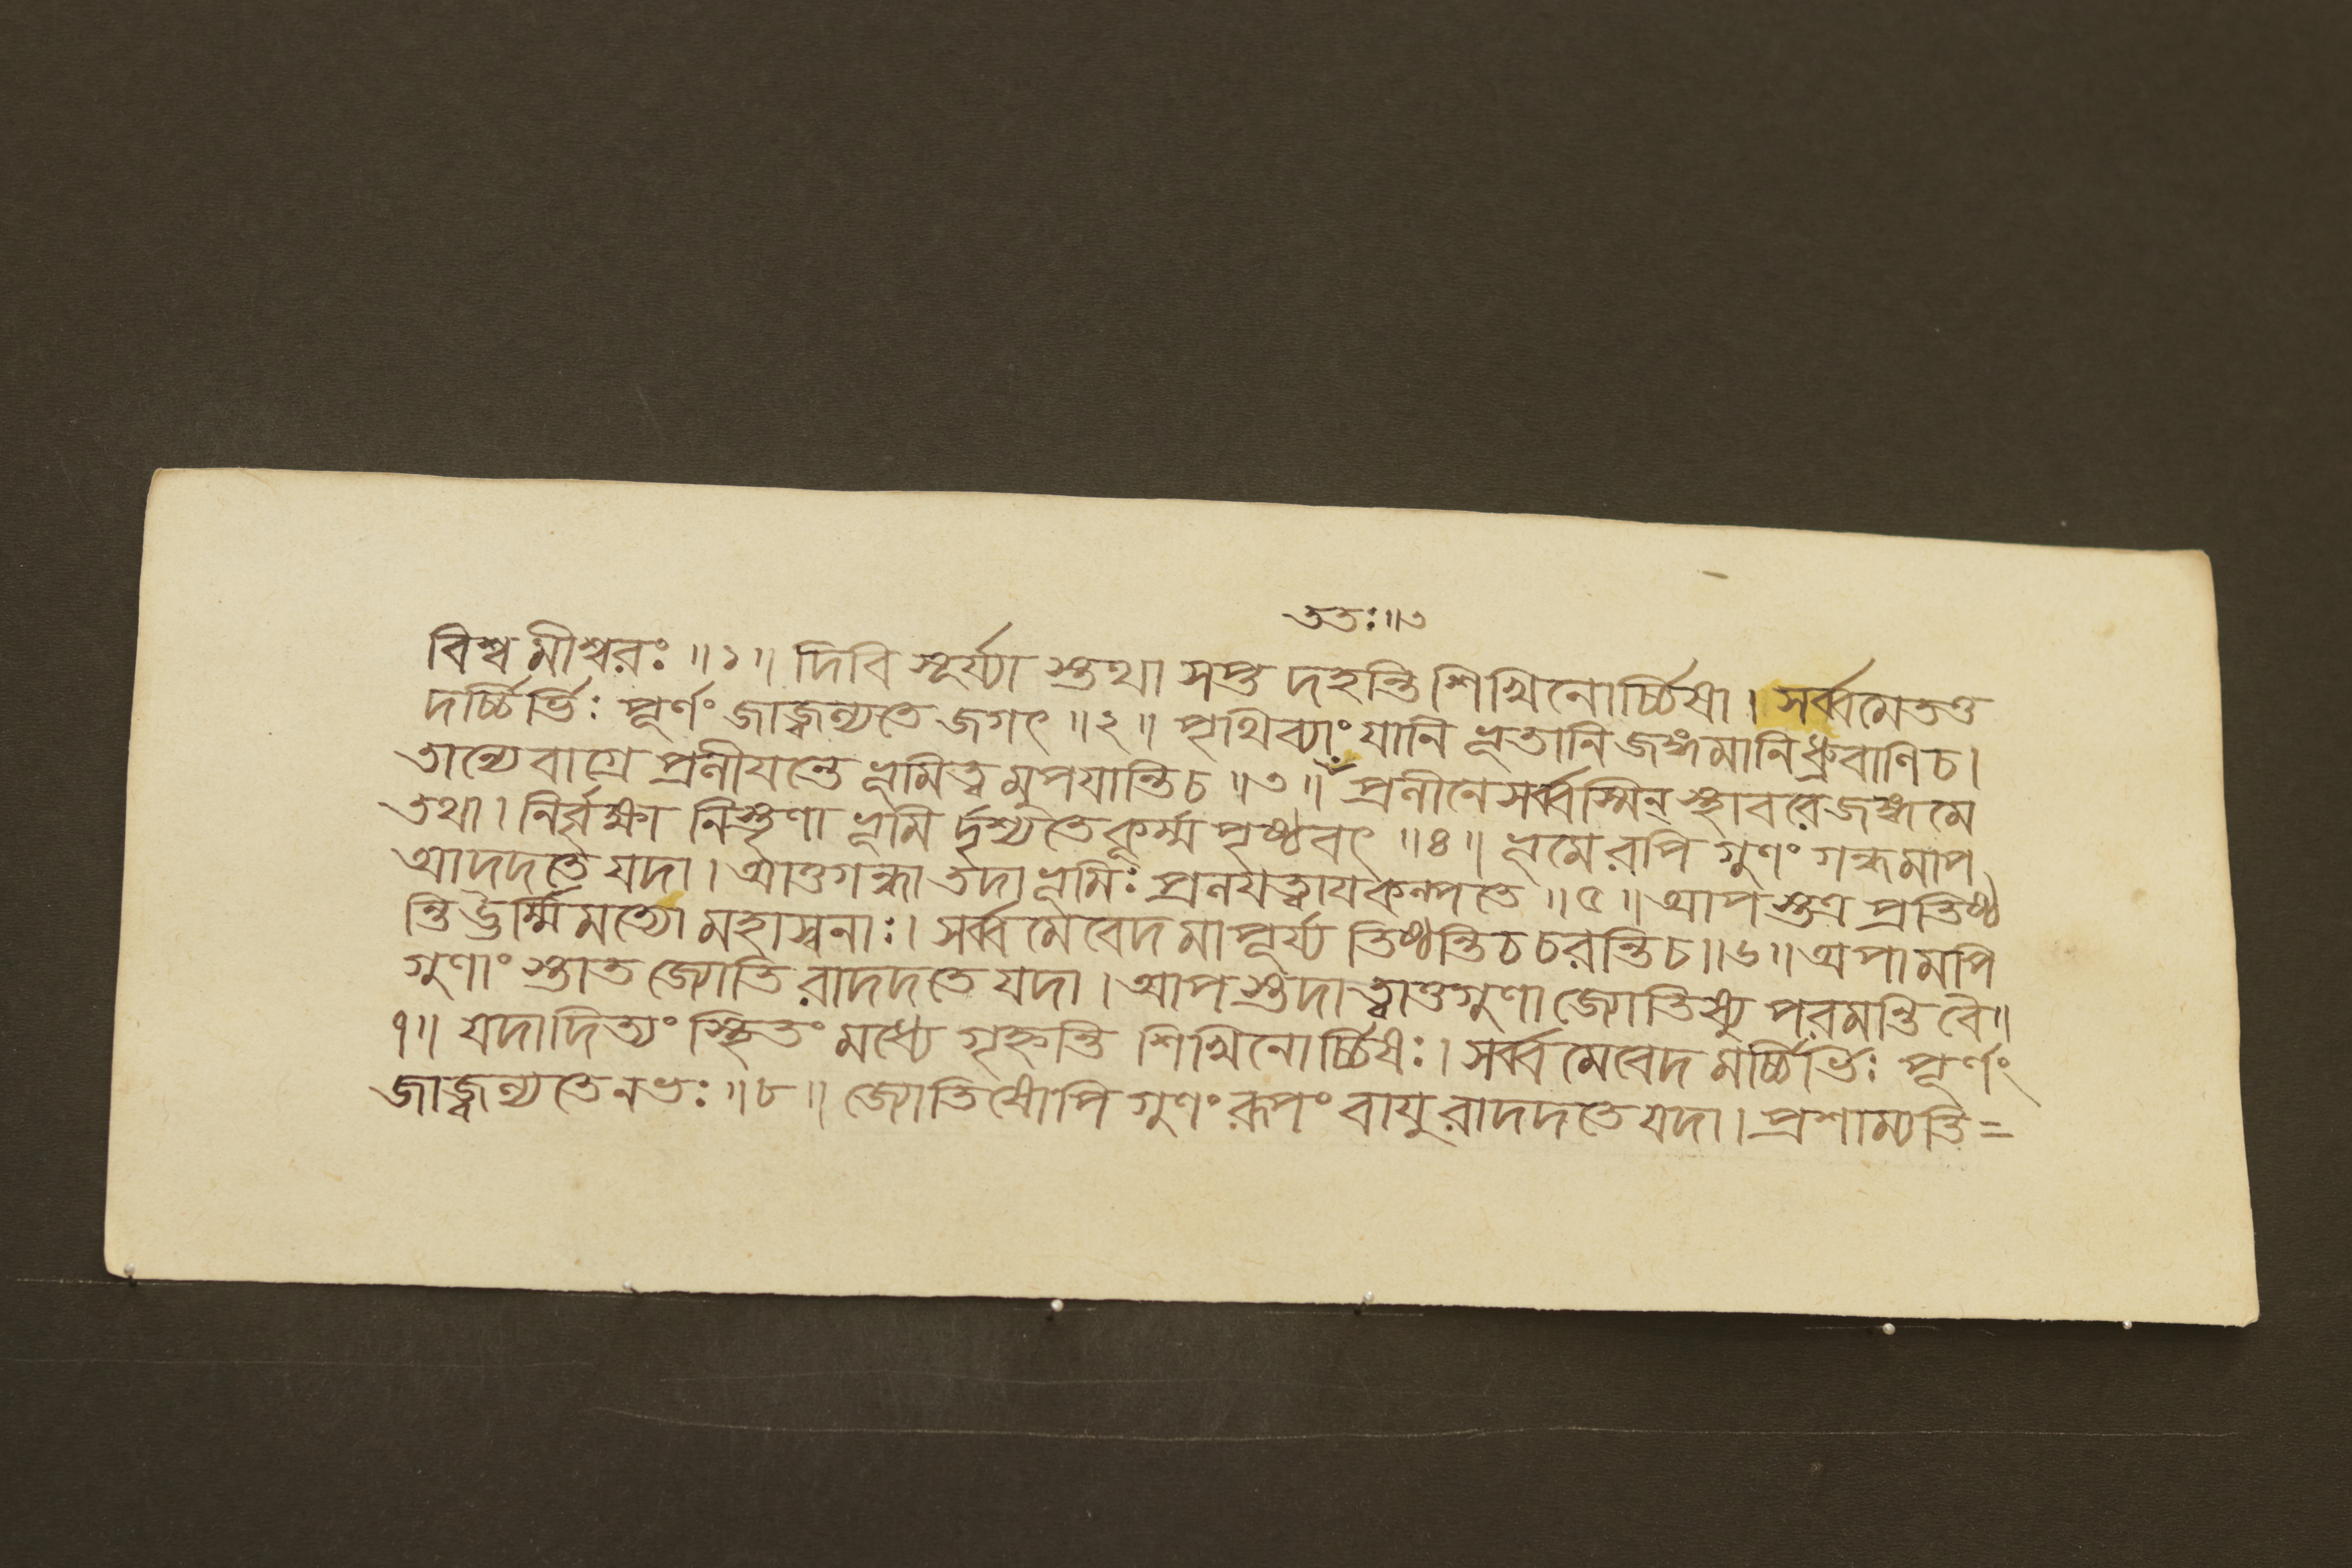 ততঃ॥৩
বিশ্বমীশ্বরঃ ॥১॥ দিবি সূর্য্যা স্তথা সপ্ত দহন্তি শিখিনোর্চ্চিষা। সর্ব্বমেতত্ত
দর্চ্চির্ভিঃ পূর্ণং জাজ্বল্যতে জগৎ ॥২॥ পৃথিব্যাং যানি ভূতানি জঙ্গমানি ধ্রুবাণি চ।
তান্যেবাগ্রে প্রলীয়ন্তে ভূমিত্ব মুপযান্তি চ ॥৩॥ প্রলীনে সর্ব্বস্মিন্ স্থাবরে জঙ্গমে
তথা। নির্বৃক্ষা নিস্তৃণা ভূমি র্দৃশ্যতে কূর্ম্ম পৃষ্ঠবৎ ॥৪॥ ভূমেরপি গুণং গন্ধমাপ
আদদতে যদা। আত্তগন্ধা তদা ভূমিঃ প্রলয়ত্বায় কল্পতে ॥৫॥ আপ স্তত্র প্রতিষ্ঠ
ন্তি ঊর্ম্মিমত্যো মহাস্বনাঃ। সর্ব্বমেবেদ মাপূর্য্য তিষ্ঠন্তি চ চরন্তি চ॥৬॥ অপামপি
গুণাং স্তাত জ্যোতি রাদদতে যদা। আপ স্তদা ত্বাত্তগুণা জ্যোতিষ্যু পরমন্তি বৈ॥
৭॥ যদাদিত্যং স্থিতং মধ্যে গৃহ্নন্তি শিখিনোর্চ্চিষঃ। সর্ব্ব মেবেদ মর্চ্চির্ভিঃ পূর্ণং
জাজ্বল্যতে নভঃ ॥৮॥ জ্যোতিষোপি গুণং রূপং বায়ু রাদদতে যদা। প্রশাম্যতি=